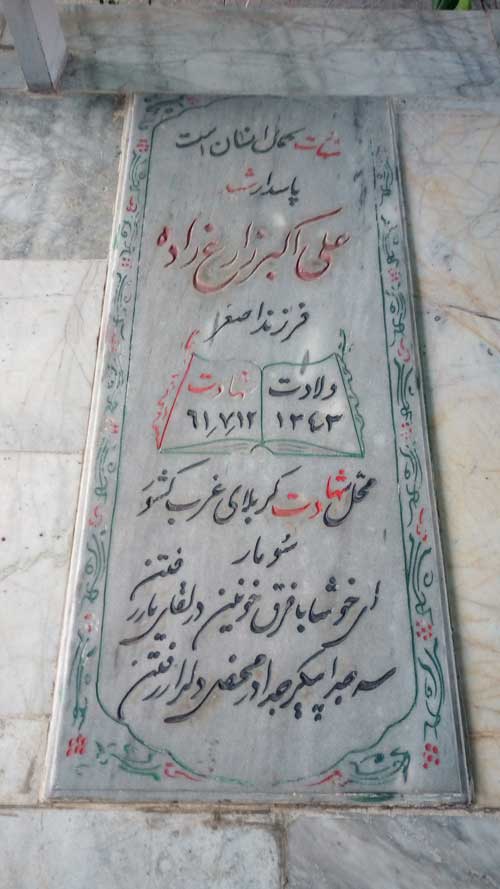 شهادت کمال انسان است
پاسدار شهید
علی اکبر زارع زاده
فرزند اصغر
ولادت
۱۳۴۳
شهادت
۶۱٫۷٫۱۲
محل شهادت کربلای غرب کشور
سومار
ای خوشا با فرق خونین در لقای یار رفتن
سر جدا پیکر جدا در محفل دلدار رفتن